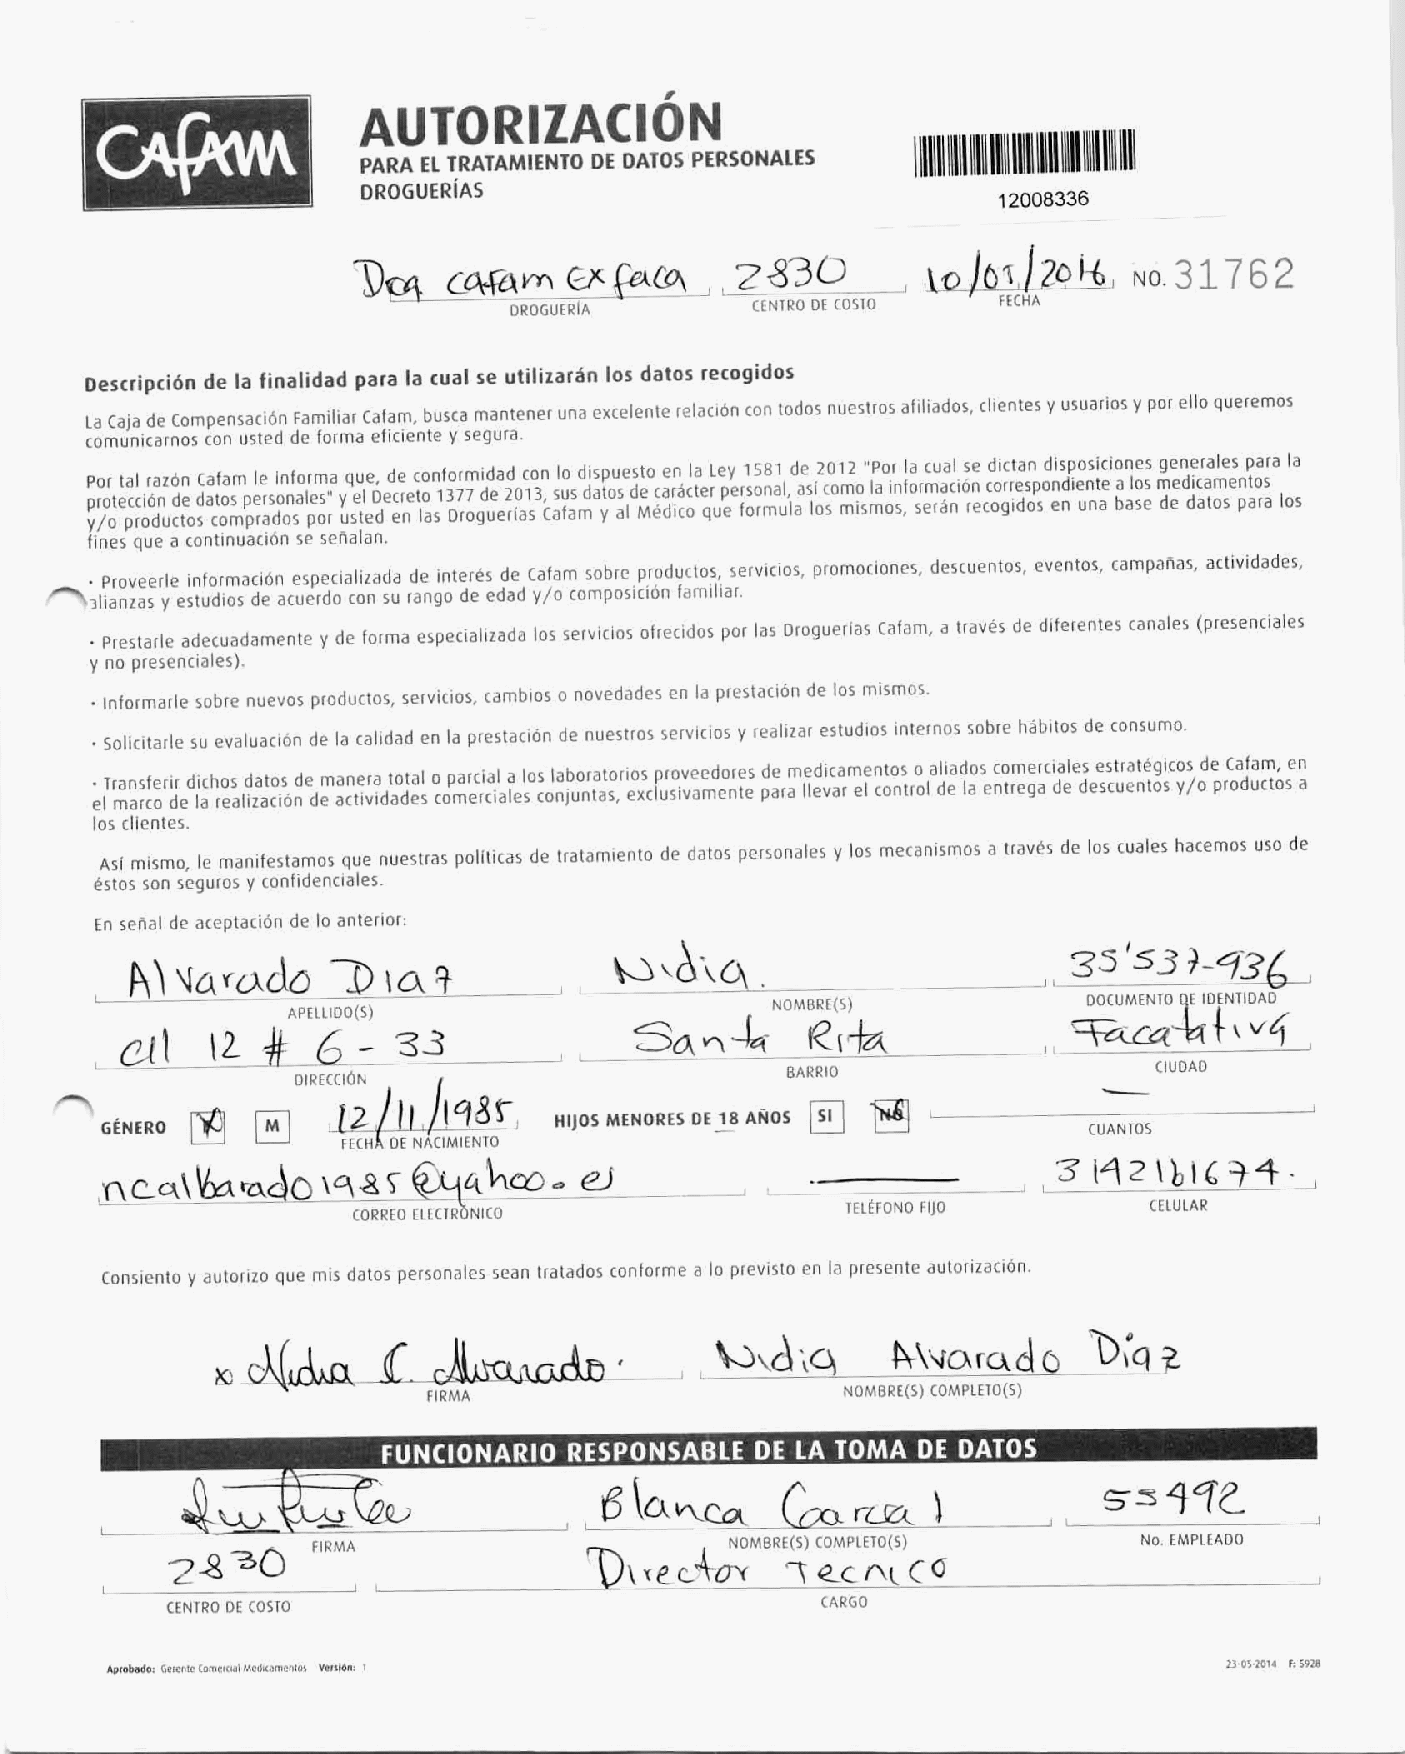 CAFAM
AUTORIZACIÓN
PARA EL TRATAMIENTO DE DATOS PERSONALES
DROGUERÍAS
12008336
Drog cafam Exfaca 2830 10/01/2016 NO. 31762
DROGUERÍA CENTRO DE COSTO FECHA
Descripción de la finalidad para la cual se utilizarán los datos recogidos
La Caja de Compensación Familiar Cafam, busca mantener una excelente relación con todos nuestros afiliados, clientes y usuarios y por ello queremos
comunicarnos con usted de forma eficiente y segura.
Por tal razón Cafam le informa que, de conformidad con lo dispuesto en la Ley 1581 de 2012 "Por la cual se dictan disposiciones generales para la
protección de datos personales" y el Decreto 1377 de 2013, sus datos de carácter personal, así como la información correspondiente a los medicamentos
y/o productos comprados por usted en las Droguerías Cafam y al Médico que formula los mismos, serán recogidos en una base de datos para los
fines que a continuación se señalan.
· Proveerle información especializada de interés de Cafam sobre productos, servicios, promociones, descuentos, eventos, campañas, actividades,
alianzas y estudios de acuerdo con su rango de edad y/o composición familiar.
· Prestarle adecuadamente y de forma especializada los servicios ofrecidos por las Droguerías Cafam, a través de diferentes canales (presenciales
y no presenciales).
· Informarle sobre nuevos productos, servicios, cambios o novedades en la prestación de los mismos.
· Solicitarle su evaluación de la calidad en la prestación de nuestros servicios y realizar estudios internos sobre hábitos de consumo.
· Transferir dichos datos de manera total o parcial a los laboratorios proveedores de medicamentos o aliados comerciales estratégicos de Cafam, en
el marco de la realización de actividades comerciales conjuntas, exclusivamente para llevar el control de la entrega de descuentos y/o productos a
los clientes.
Así mismo, le manifestamos que nuestras políticas de tratamiento de datos personales y los mecanismos a través de los cuales hacemos uso de
éstos son seguros y confidenciales.
En señal de aceptación de lo anterior:
Alvarado Diaz Nidia. 35'537-936
APELLIDO(S) NOMBRE(S) DOCUMENTO DE IDENTIDAD
Cll 12 # 6 - 33 Santa Rita Facatativa
DIRECCIÓN BARRIO CIUDAD
GÉNERO X M 12/11/1985 HIJOS MENORES DE 18 AÑOS SI NO —
FECHA DE NACIMIENTO CUANTOS
ncalbarado1985@yahoo.es — 3142161674.
CORREO ELECTRÓNICO TELÉFONO FIJO CELULAR
Consiento y autorizo que mis datos personales sean tratados conforme a lo previsto en la presente autorización.
x Nidia C. Alvarado. Nidia Alvarado Diaz
FIRMA NOMBRE(S) COMPLETO(S)
FUNCIONARIO RESPONSABLE DE LA TOMA DE DATOS
Blanca Garcia 55492
FIRMA NOMBRE(S) COMPLETO(S) No. EMPLEADO
2830 Director Tecnico
CENTRO DE COSTO CARGO
Aprobado: Gerente Comercial Medicamentos Versión: 1 23-05-2014 F: 5928